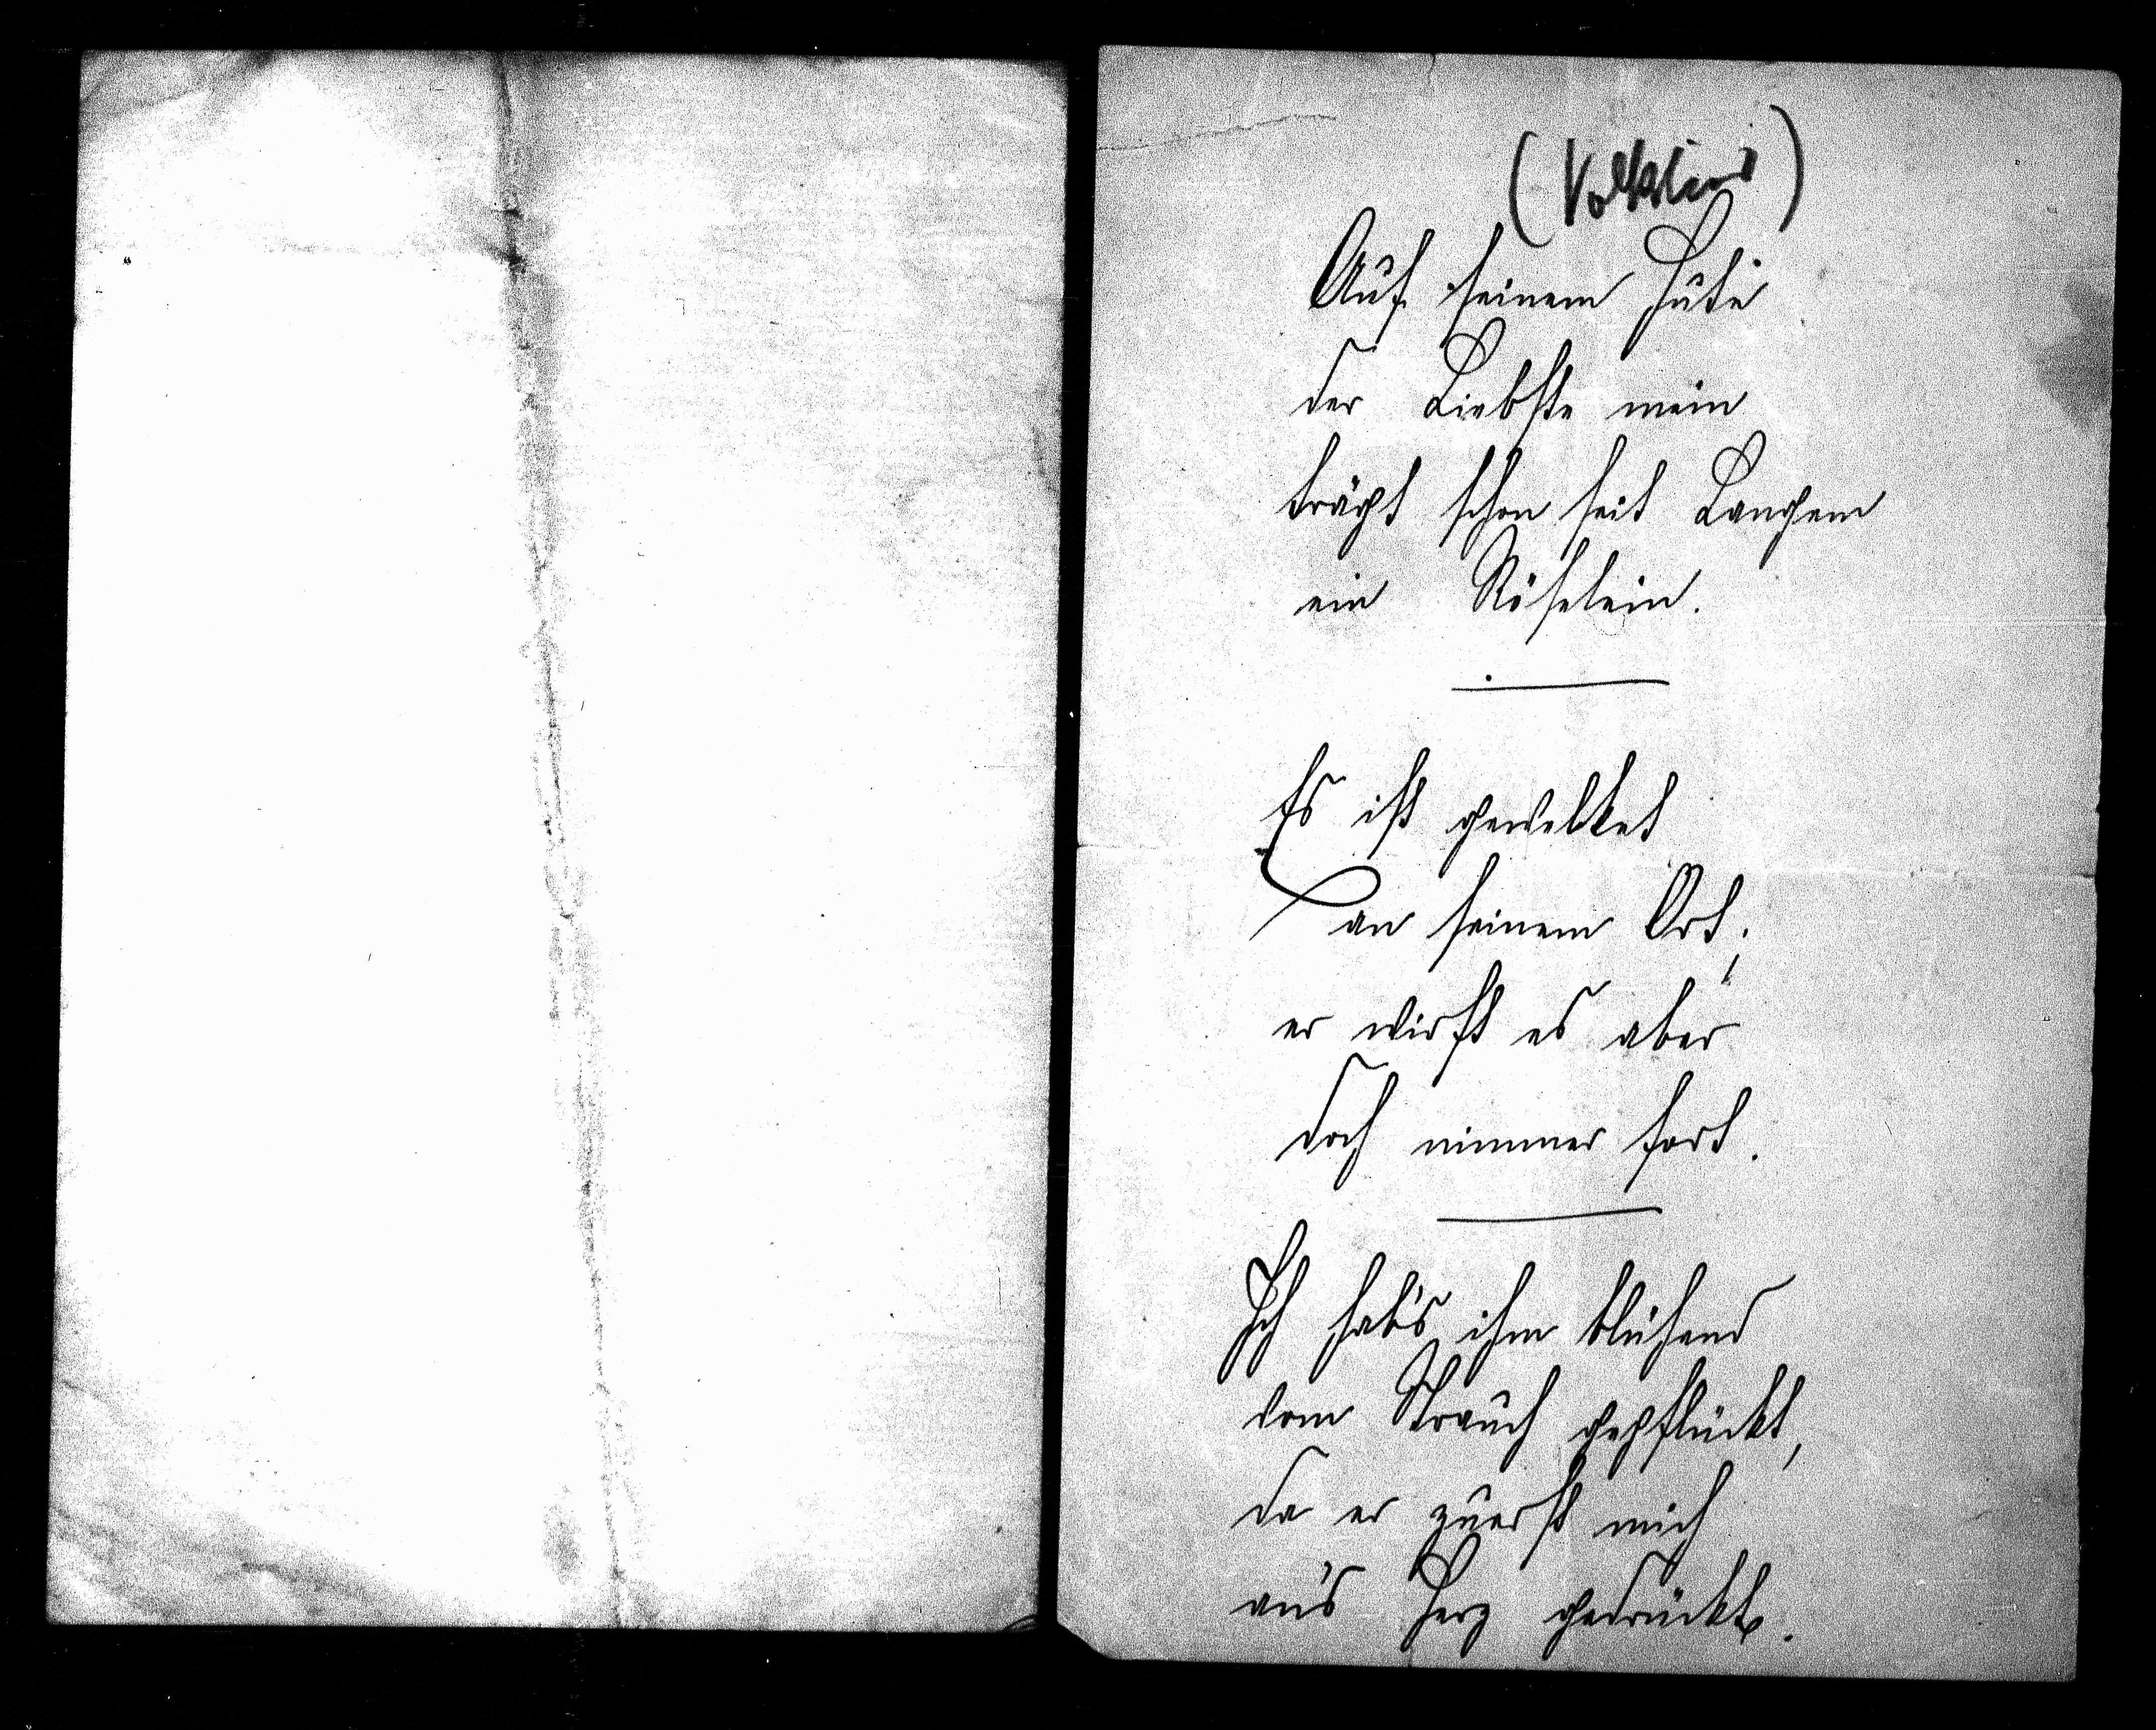 (Volkslied)
Auf seinem Hute
der Liebste mein
trägt schon seit Langem
ein Röselein.
Es ist gewelket
an seinem Ort;
er wirft es aber
doch nimmer fort.
Ich hab's ihm blühend
vom Strauch gepflückt,
da er zuerst mich
an's Herz gedrückt.